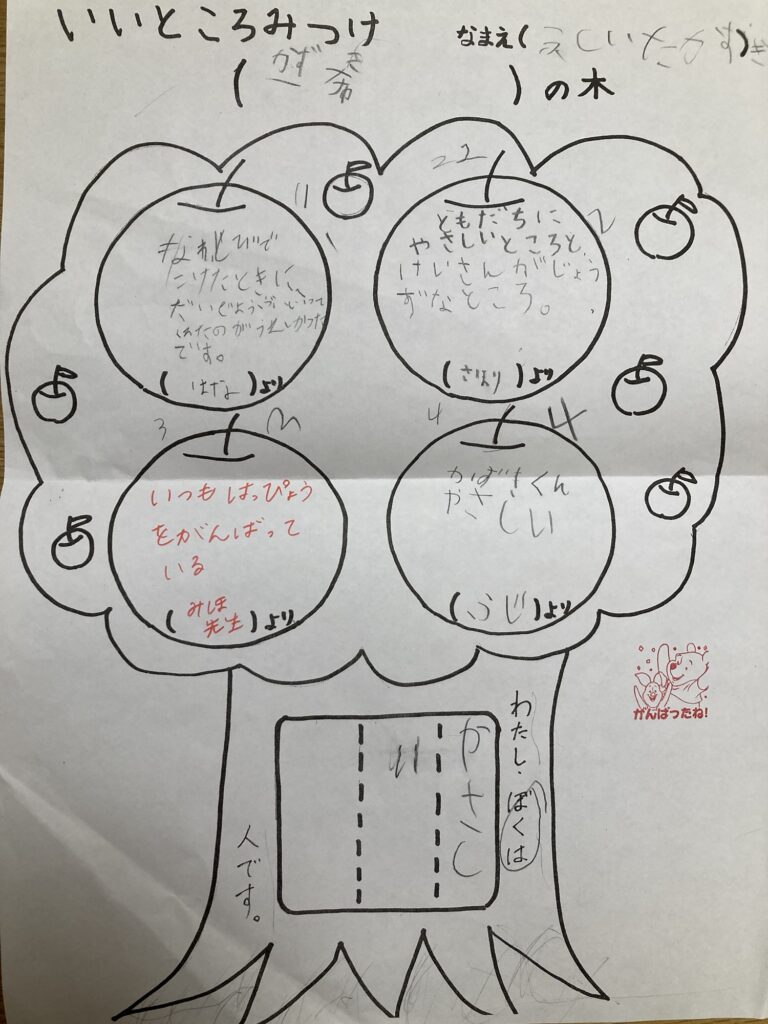 いいところみつけ
なまえ(
(かず希)の木
11
22
2
なわとびで
こけたときに、
だいじょうぶといって
くれたのがうれしかった
です。
(はな)より
ともだちに
やさしいところと、
けいさんがじょう
ずなところ。
(さほり)より
3
いつもはっぴょう
をがんばって
いる
(みほ先生)より
4
4
かずきくん
やさしい
(ふじ)より
がんばったね!
わたし・ぼくは
やさし
い
人です。